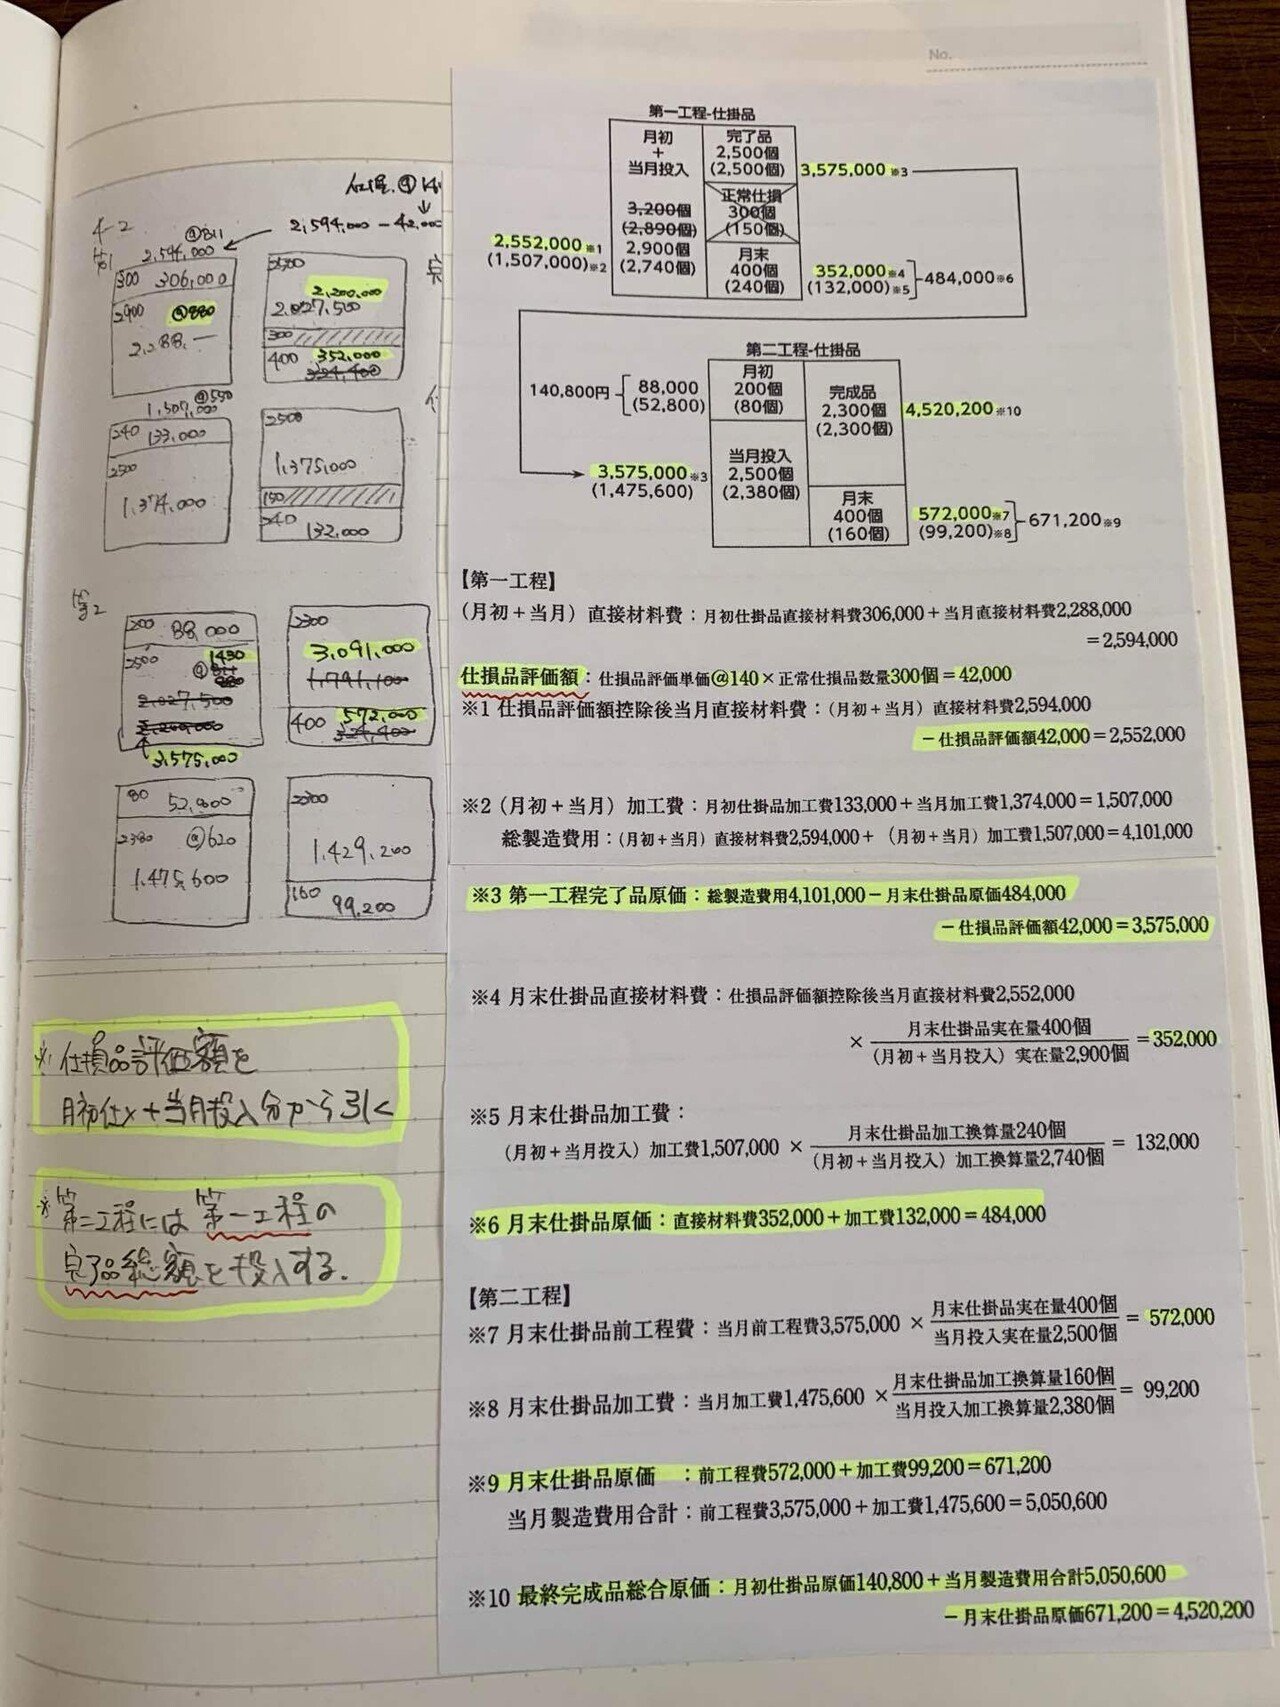 No.
仕損.@
2,594,000 - 42,000
4-2
@811
2,594,000
300 306,000
2900 @880
2,288,—
2500
2,200,000
2,027,500
300
400 352,000
324,400
@550
1,507,000
240 133,000
2500
1,374,000
2500
1,375,000
150
240 132,000
第2
200 88,000
2500 1430
@811
880
2,027,500
2,200,000
3,575,000
2300
3,091,000
1,791,100
400 572,000
324,400
80 52,800
2380 @620
1,475,600
2300
1,429,200
160 99,200
※仕損品評価額を
月初仕×+当月投入分から引く
※第二工程には第一工程の
完了品総額を投入する.
第一工程-仕掛品
月初
+
当月投入
3,200個
(2,890個)
2,900個
(2,740個)
2,552,000※1
(1,507,000)※2
完了品
2,500個
(2,500個)
3,575,000※3
正常仕損
300個
(150個)
月末
400個
(240個)
352,000※4
(132,000)※5
484,000※6
第二工程-仕掛品
140,800円
88,000
(52,800)
月初
200個
(80個)
完成品
2,300個
(2,300個)
4,520,200※10
3,575,000※3
(1,475,600)
当月投入
2,500個
(2,380個)
月末
400個
(160個)
572,000※7
(99,200)※8
671,200※9
【第一工程】
(月初+当月)直接材料費:月初仕掛品直接材料費306,000+当月直接材料費2,288,000
=2,594,000
仕損品評価額:仕損品評価単価@140×正常仕損品数量300個=42,000
※1 仕損品評価額控除後当月直接材料費:(月初+当月)直接材料費2,594,000
-仕損品評価額42,000=2,552,000
※2(月初+当月)加工費:月初仕掛品加工費133,000+当月加工費1,374,000=1,507,000
総製造費用:(月初+当月)直接材料費2,594,000+(月初+当月)加工費1,507,000=4,101,000
※3 第一工程完了品原価:総製造費用4,101,000-月末仕掛品原価484,000
-仕損品評価額42,000=3,575,000
※4 月末仕掛品直接材料費:仕損品評価額控除後当月直接材料費2,552,000
× 月末仕掛品実在量400個
(月初+当月投入)実在量2,900個 =352,000
※5 月末仕掛品加工費:
(月初+当月投入)加工費1,507,000× 月末仕掛品加工換算量240個
(月初+当月投入)加工換算量2,740個 = 132,000
※6 月末仕掛品原価:直接材料費352,000+加工費132,000=484,000
【第二工程】
※7 月末仕掛品前工程費:当月前工程費3,575,000× 月末仕掛品実在量400個
当月投入実在量2,500個 = 572,000
※8 月末仕掛品加工費:当月加工費1,475,600× 月末仕掛品加工換算量160個
当月投入加工換算量2,380個 = 99,200
※9 月末仕掛品原価 :前工程費572,000+加工費99,200=671,200
当月製造費用合計:前工程費3,575,000+加工費1,475,600=5,050,600
※10 最終完成品総合原価:月初仕掛品原価140,800+当月製造費用合計5,050,600
-月末仕掛品原価671,200=4,520,200